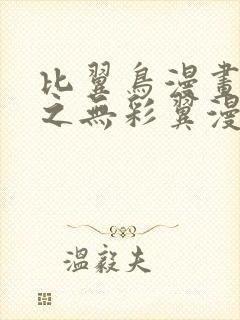 比翼鳥漫畫
之無彩翼漫
溫毅夫